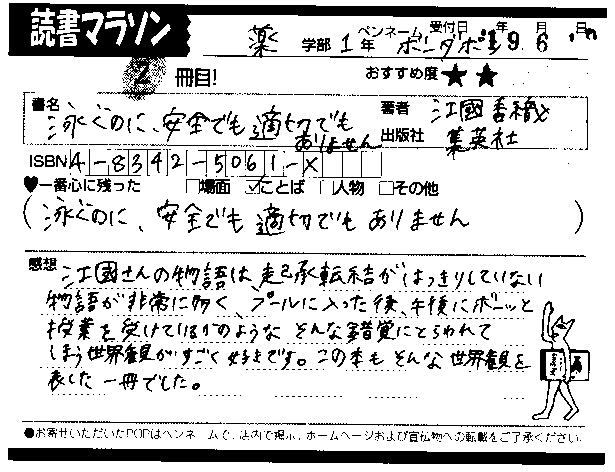 読書マラソン
薬 学部 1 年 ペンネーム ボンダボン 受付日 年 9 月 6 日
2 冊目! おすすめ度 ★ ★
書名 泳ぐのに、安全でも適切でも ありません
著者 江國香織
出版社 集英社
ISBN 4-8342-5061-X
♥一番心に残った □場面 ☑ことば □人物 □その他
(泳ぐのに、安全でも適切でもありません)
感想 江國さんの物語は、起承転結がはっきりしていない
物語が非常に多く、プールに入った後、午後にボーッと
授業を受けているかのような そんな錯覚にとらわれて
しまう世界観がすごく好きです。この本も そんな世界観を
表した一冊でした。
●お寄せいただいたPOPはペンネームで、店内で掲示、ホームページおよび宣伝物への転載をご了承ください。